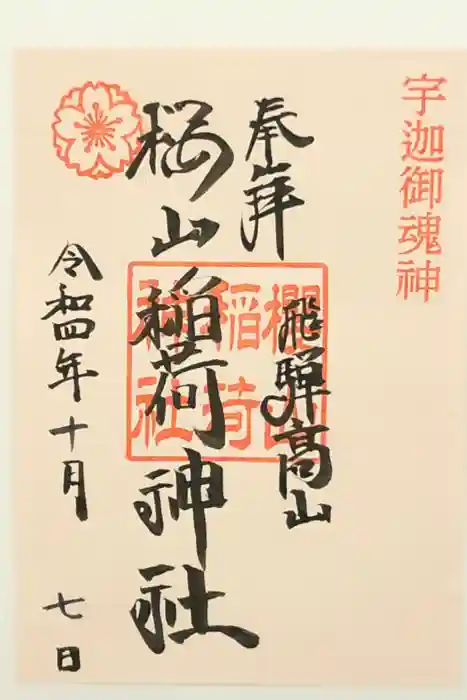 宇迦御魂神
奉拝
飛騨高山
桜山稲荷神社
櫻山
稲荷
神社
令和四年十月
七日